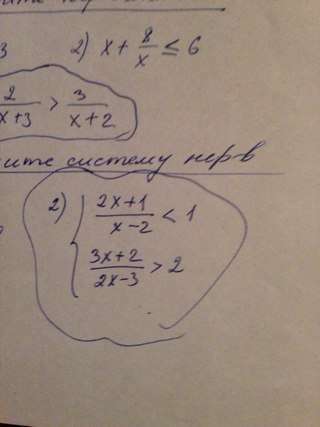 3 2) x + 8/x ≤ 6
2/(x+3) > 3/(x+2)
систему нер-в
2) { (2x+1)/(x-2) < 1
(3x+2)/(2x-3) > 2